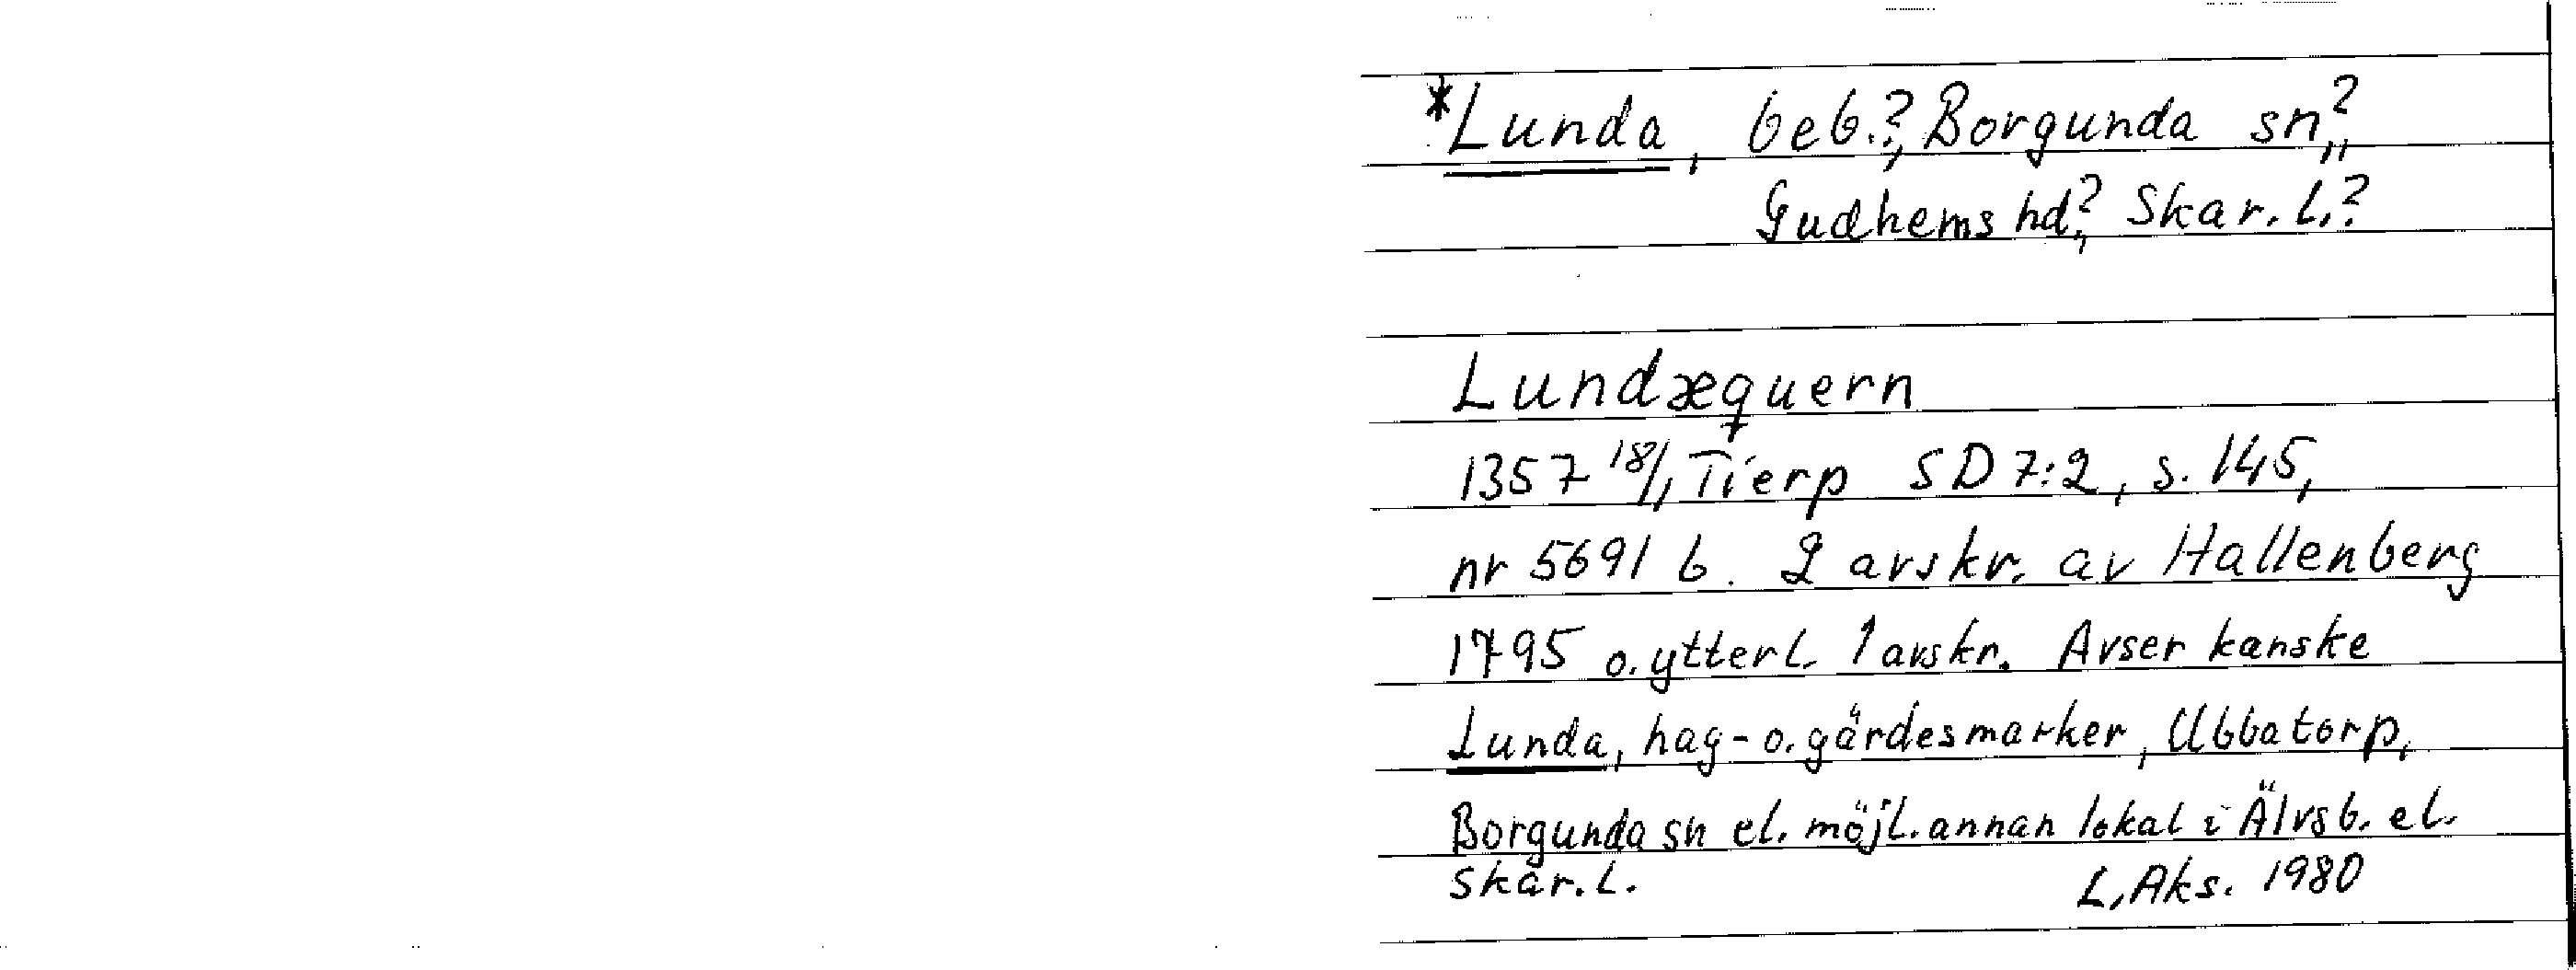 *Lunda, beb.?, Borgunda sn?,
Gudhems hd?, Skar. l.?
Lundæquern
1357 18/1 Tierp SD 7:2, s. 145,
nr 5691 b. 2 avskr. av Hallenberg
1795 o. ytterl. 1 avskr. Avser kanske
Lunda, hag- o. gärdesmarker, Ubbatorp,
Borgunda sn el. möjl. annan lokal i Älvsb. el.
Skar. l. L. Aks. 1980